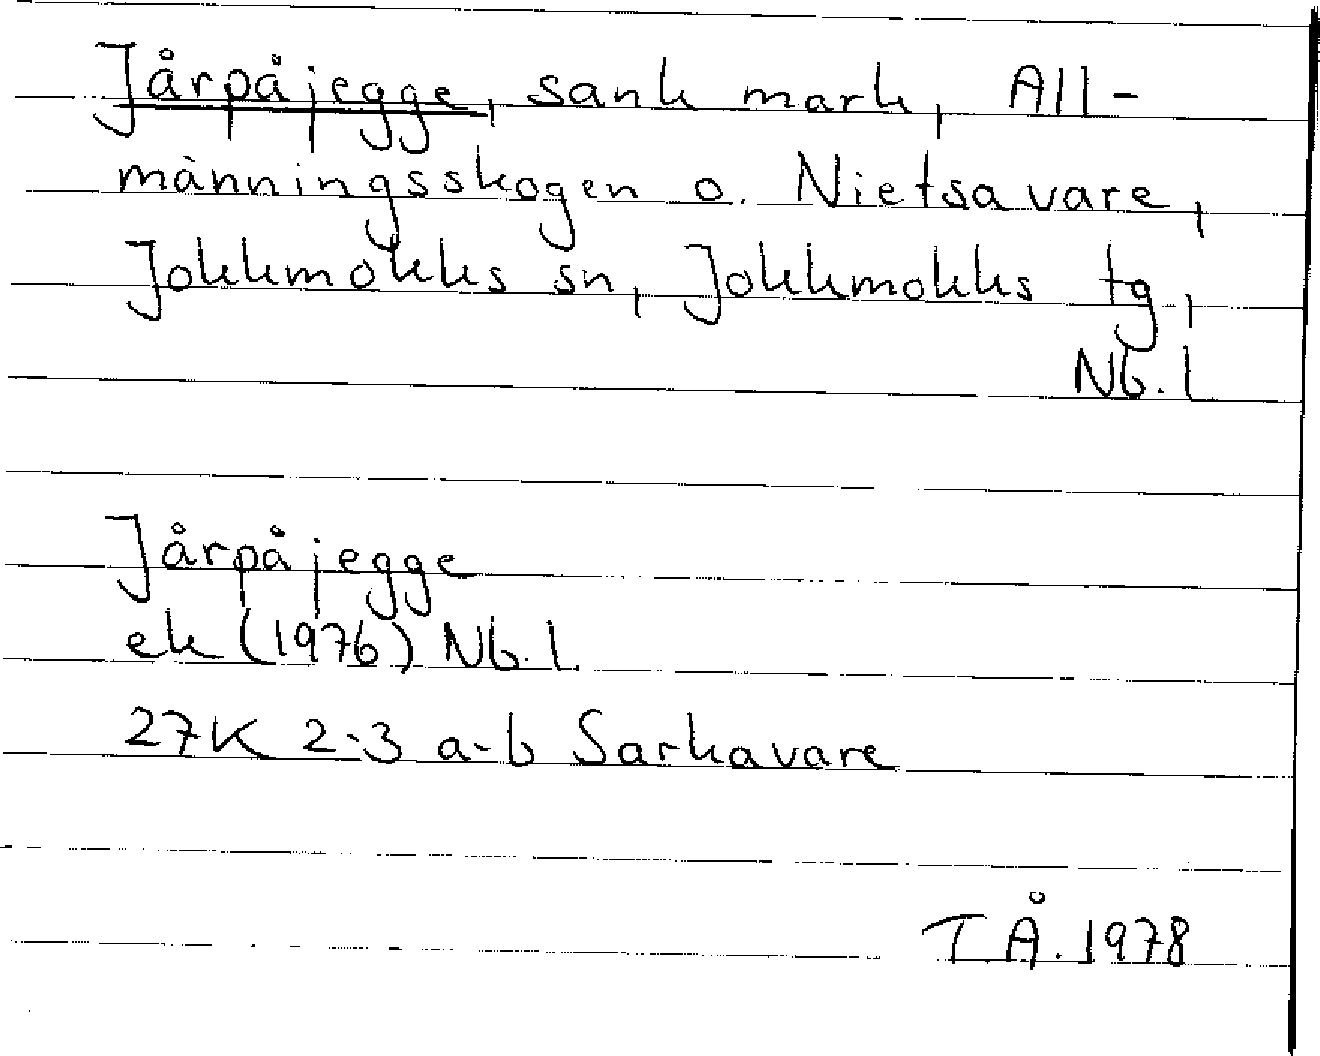 Jårpåjegge, sank mark, All-
männingsskogen o. Nietsavare,
Jokkmokks sn, Jokkmokks tg,
Nb. l
Jårpåjegge
ek (1976) Nb. l.
27K 2-3 a-b Sarkavare
T Å. 1978